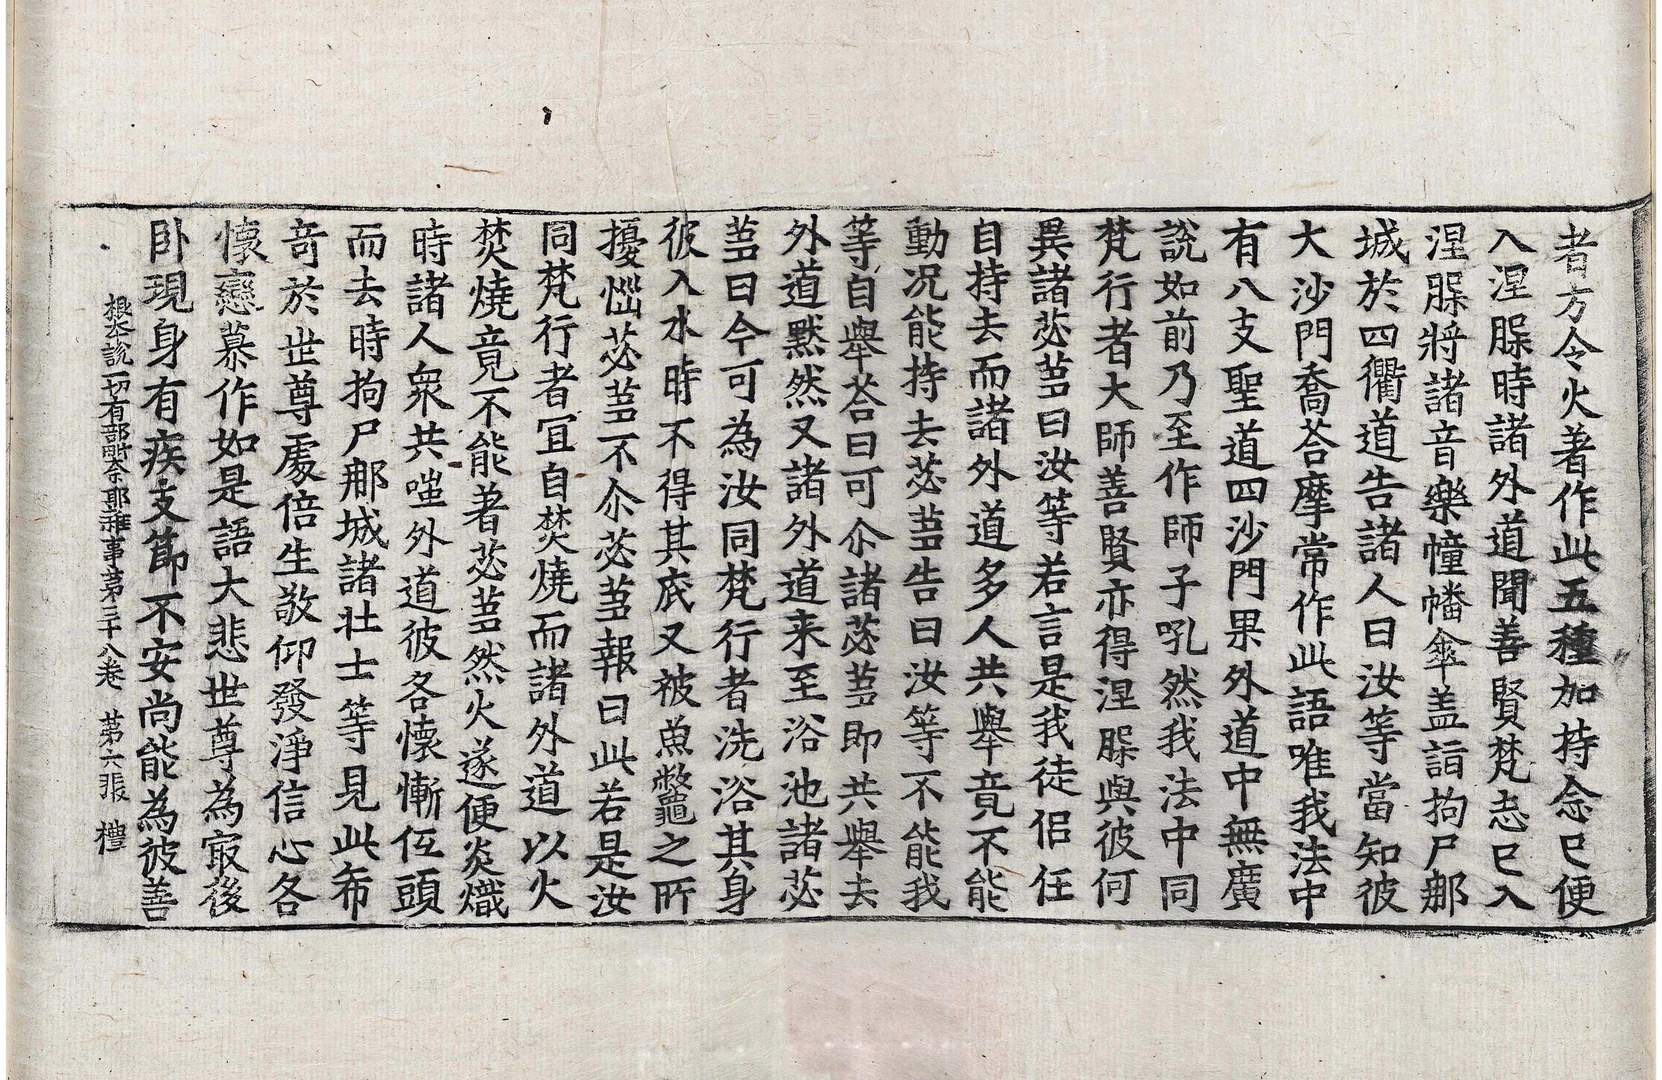 者方令火著作此五種加持念已便
入涅腺時諸外道聞善賢梵志已入
涅腺將諸音樂幢幡傘盖詣拘尸那
城於四衢道告諸人曰汝等當知彼
大沙門喬荅摩常作此語唯我法中
有八支聖道四沙門果外道中無廣
說如前乃至作師子吼然我法中同
梵行者大師善賢亦得涅腺與彼何
異諸苾芻曰汝等若言是我徒侣任
自持去而諸外道多人共舉竟不能
動况能持去苾芻告曰汝等不能我
等自舉荅曰可尒諸苾芻即共舉去
外道默然又諸外道来至浴池諸苾
芻曰今可為汝同梵行者洗浴其身
彼入水時不得其底又被魚鼈之所
擾惱苾芻不尒苾芻報曰此若是汝
同梵行者冝自焚燒而諸外道以火
焚燒竟不能著苾芻然火遂便炎熾
時諸人衆共嗤外道彼各懷慚伍頭
而去時拘尸那城諸壮士等見此希
竒於世尊處倍生敬仰發淨信心各
懷戀慕作如是語大悲世尊為寂後
卧現身有疾支節不安尚能為彼善
根本說一切有部毗奈耶雜事第三十八卷 第六張 禮